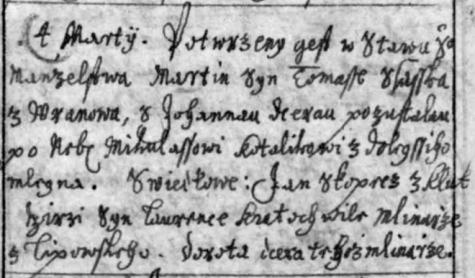 4 Martÿ. Potwrzeny gest w Stawu So
Manzelstwa Martin Syn Tomasse
z Wranova, s Johannau dcerau pozustalau
po Neb: Mikulassowi Kotalikowi z dolegssiho
mlegna. Swietkowe: Jan Skopecz z
Girzi Syn Laurence Kratochwile mlinarze
z Lipowskeho. Dorota dcera tehoz mlinarze.